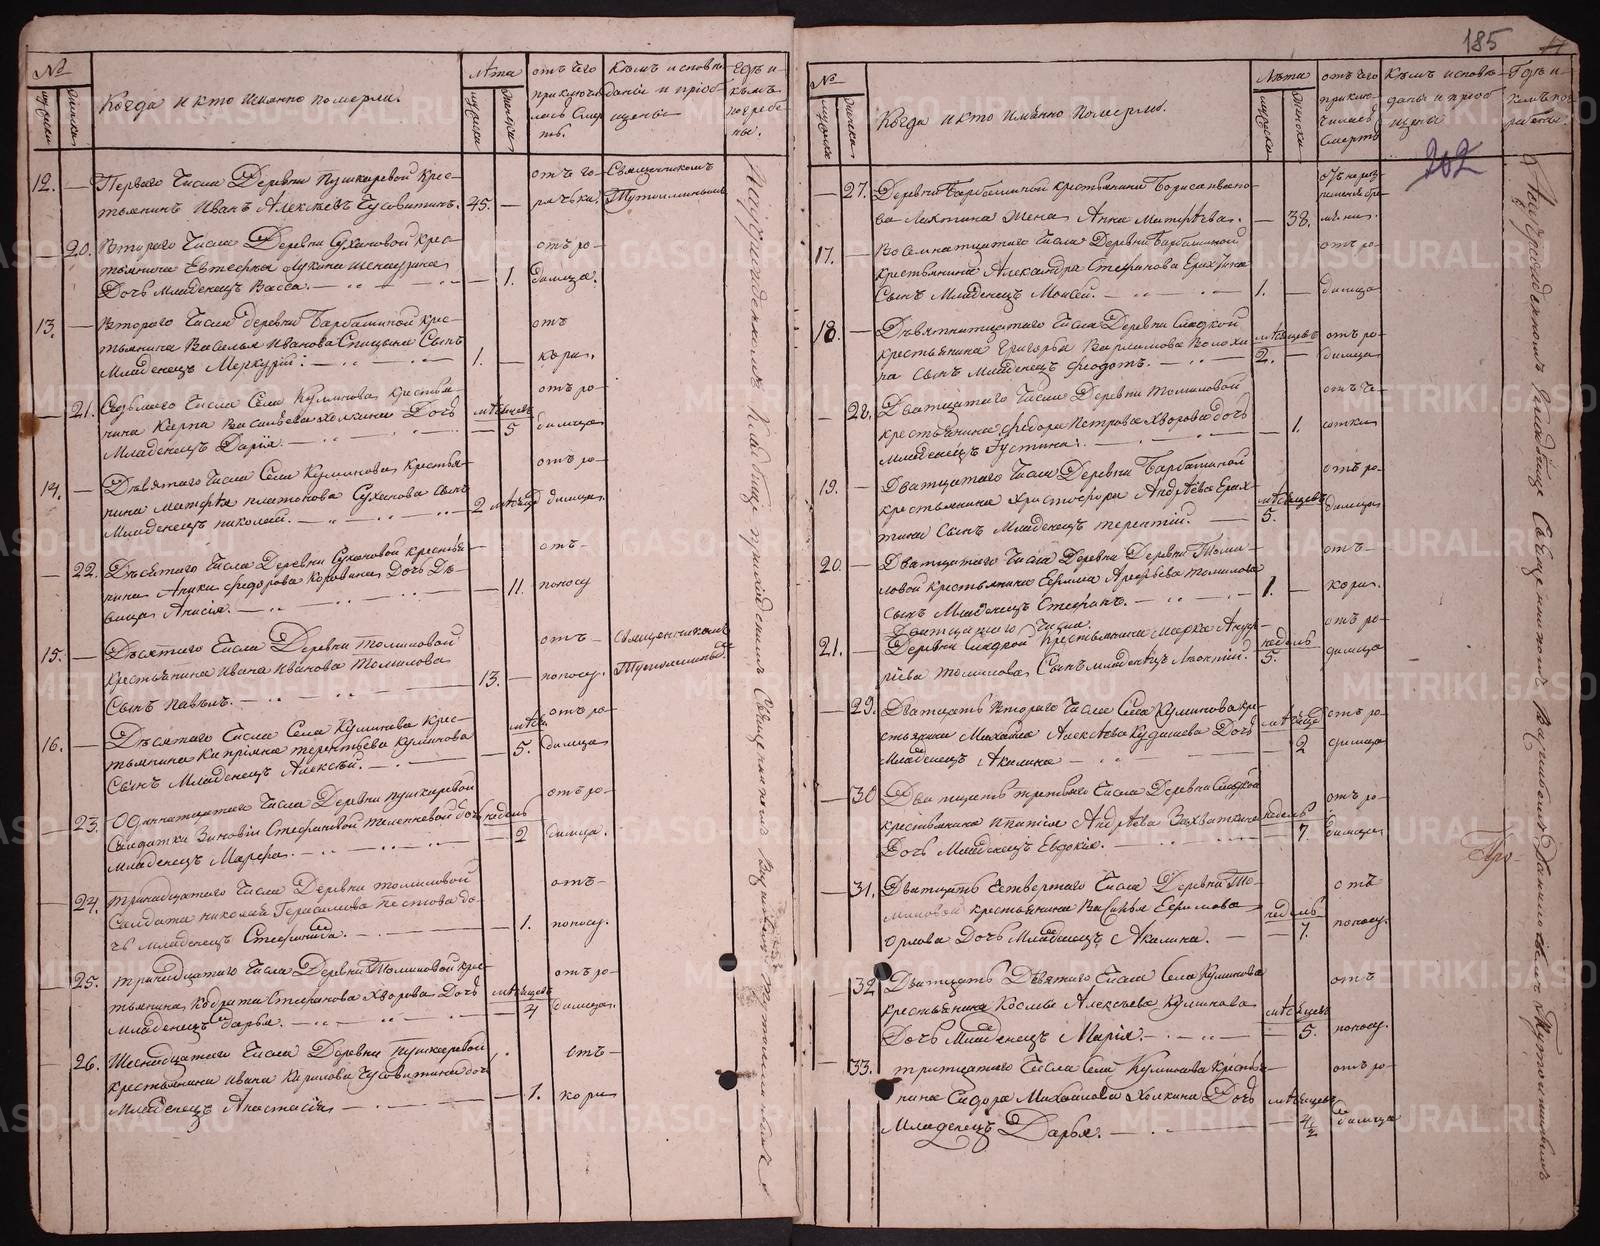 №
мужска
женска
Когда и кто имянно померли.
лѣта
мужска
женска
отъ чего
приключи
лась смер
ть.
Кѣмъ исповѣ
даны и пріоб
щены
Гдѣ и
кѣмъ
погребе
ны.
12. — Перваго числа Деревни Пушкаревой крес-
тьянинъ Иванъ Алексѣевъ Чусовитинъ. 45. —
отъ го-
рячьки.
Священникомъ
20. Втораго числа Деревни Сухановой крес-
Дочь Младенецъ Васса. — 1.
отъ ро-
димца.
13. — Втораго числа деревни Барбашиной крес-
тьянина Василья Иванова Спицына Сынъ
Младенецъ Меркурій. 1. —
отъ
кори.
21. Седьмаго числа Села Куликова крестья-
нина Карпа Васильева Холкина Дочь
Младенецъ Дарія. —
мѣсяцевъ
5
отъ ро-
димца
14. — Девятаго числа Села Куликова крестья-
нина Матфея Платонова Суханова сынъ
Младенецъ Николай. — 2 мѣсяце
отъ ро-
димца.
22. Десятаго числа Деревни Сухановой крестья-
нина Аники Федорова Коровина Дочь Дѣ-
вица Анисія. — 11.
отъ-
поносу
15. — Десятаго числа Деревни Томиловой
крестьянина Ивана Иванова Томилова
Сынъ Павелъ. — 13. —
отъ-
поносу.
Священникомъ
16. — Десятаго числа Села Куликова крес-
тьянина Кипріяна Терентьева Куликова
Сынъ Младенецъ Алексѣй. —
5.
отъ ро-
димца
23. Одиннатцатаго числа Деревни Пушкаревой
Солдатки Зиновіи Стефановой Теленковой дочь
Младенецъ Марфа.
недель
2
отъ ро-
димца.
24. Тринадцатаго числа Деревни Томиловой
Солдата Николая Герасимова Пестова до-
чь младенецъ Стефанида. — 1.
отъ-
поносу.
25. Тринадцатаго числа Деревни Томиловой крес-
тьянина Кодрата Стефанова Хворова Дочь
Младенецъ Дарья. —
мѣсяцевъ
4
отъ ро-
димца.
26. Шеснадцатаго числа Деревни Пушкаревой
крестьянина Ивана Кирилова Чусовитина доч
Младенецъ Анастасія — 1.
отъ-
кори
185
№
мужска
женска
Когда и кто имянно померли.
лѣта
мужска
женска
отъ чего
приклю-
чилась
смерть
Кѣмъ исповѣ-
даны и пріоб
щены
Гдѣ и
кемъ пог-
ребены.
202
27. Деревни Барбашиной крестьянина Бориса Ивано-
ва Лахтина жена Анна Матфѣева. — 38.
17. — Восемнатцатаго числа Деревни Барбашиной
крестьянина Александра Стефанова Ерахтина
Сынъ Младенецъ Моисей. — 1. —
отъ ро-
димца
18. — Девятнатцатаго числа Деревни Сладкой
крестьянина Григорья Варламова Волохи
на Сынъ Младенецъ Федотъ. —
мѣсяцевъ
2. —
отъ ро-
димца
28. Дватцатаго числа Деревни Томиловой
крестьянина Федора Петрова Хворова дочь
Младенецъ Густина. — 1.
отъ ча-
хотки
19. — Дватцатаго числа Деревни Барбашиной
крестьянина Христофора Андрѣева Ерах-
тина Сынъ Младенецъ Терентій.
мѣсяцевъ
5.
отъ ро-
димца
20. — Дватцатаго числа Деревни Деревни Томи-
ловой крестьянина Ефима Арефьева Томилова
Сынъ Младенецъ Стефанъ. — 1. —
отъ-
кори.
21. — Дватцатаго числа.
Деревни Сладкой крестьянина Марка Андр
рѣева Томилова Сынъ младенецъ Леонтій.
недель
5.
отъ ро-
димца
29. Дватцать втораго числа Села Куликова кре-
стьянина Михаила Алексѣева Кудашева Дочь
Младенецъ Акилина —
мѣсяце
2
отъ ро-
димца
30 Дватцать третьяго числа Деревни Сладкой
крестьянина Игнатія Андрѣева Вахваткина
Дочь Младенецъ Евдокія. —
недель
7.
отъ ро-
димца
31. Дватцать четвертаго числа Деревни То-
миловой крестьянина Василья Ефимова
Орлова Дочь Младенецъ Акилина. —
недель
7.
отъ
поносу.
32 Дватцать девятаго числа Села Куликова
крестьянина Космы Алексѣева Куликова
Дочь Младенецъ Марія. —
мѣсяцевъ
5.
отъ
поносу.
33. Тритцатаго числа Села Куликова крестья-
нина Сидора Михайлова Холкина Дочь
Младенецъ Дарья. —
мѣсяцевъ
4½
отъ ро-
димца
METRIKI.GASO-URAL.RU